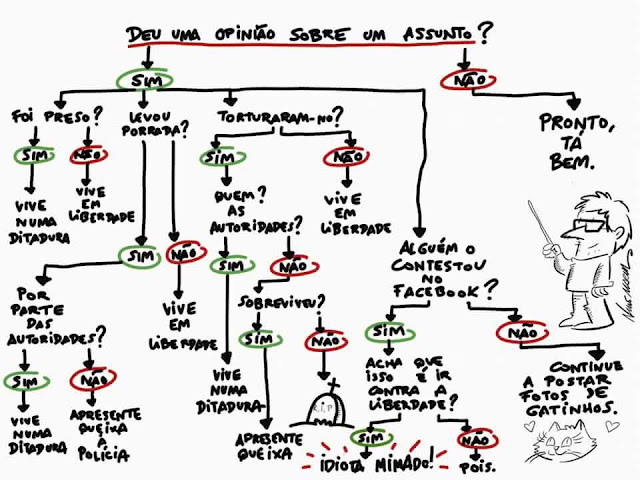 DEU UMA OPINIÃO SOBRE UM ASSUNTO?
SIM
NÃO
FOI PRESO?
LEVOU
PORRADA?
TORTURARAM-NO?
PRONTO,
TÁ
BEM.
SIM
NÃO
SIM
NÃO
VIVE
NUMA
DITADURA
VIVE
EM
LIBERDADE
QUEM?
AS
AUTORIDADES?
VIVE
EM
LIBERDADE
SIM
NÃO
SIM
NÃO
ALGUÉM O
CONTESTOU
NO
FACEBOOK?
POR
PARTE
DAS
AUTORIDADES?
VIVE
EM
LIBERDADE
SOBREVIVEU?
SIM
NÃO
SIM
NÃO
SIM
NÃO
VIVE
NUMA
DITADURA
APRESENTE
QUEIXA
À
POLÍCIA
VIVE
NUMA
DITADURA
APRESENTE
QUEIXA
R.I.P
ACHA QUE
ISSO É IR
CONTRA A
LIBERDADE?
CONTINUE
A POSTAR
FOTOS DE
GATINHOS.
SIM
NÃO
IDIOTA MIMADO!
POIS.